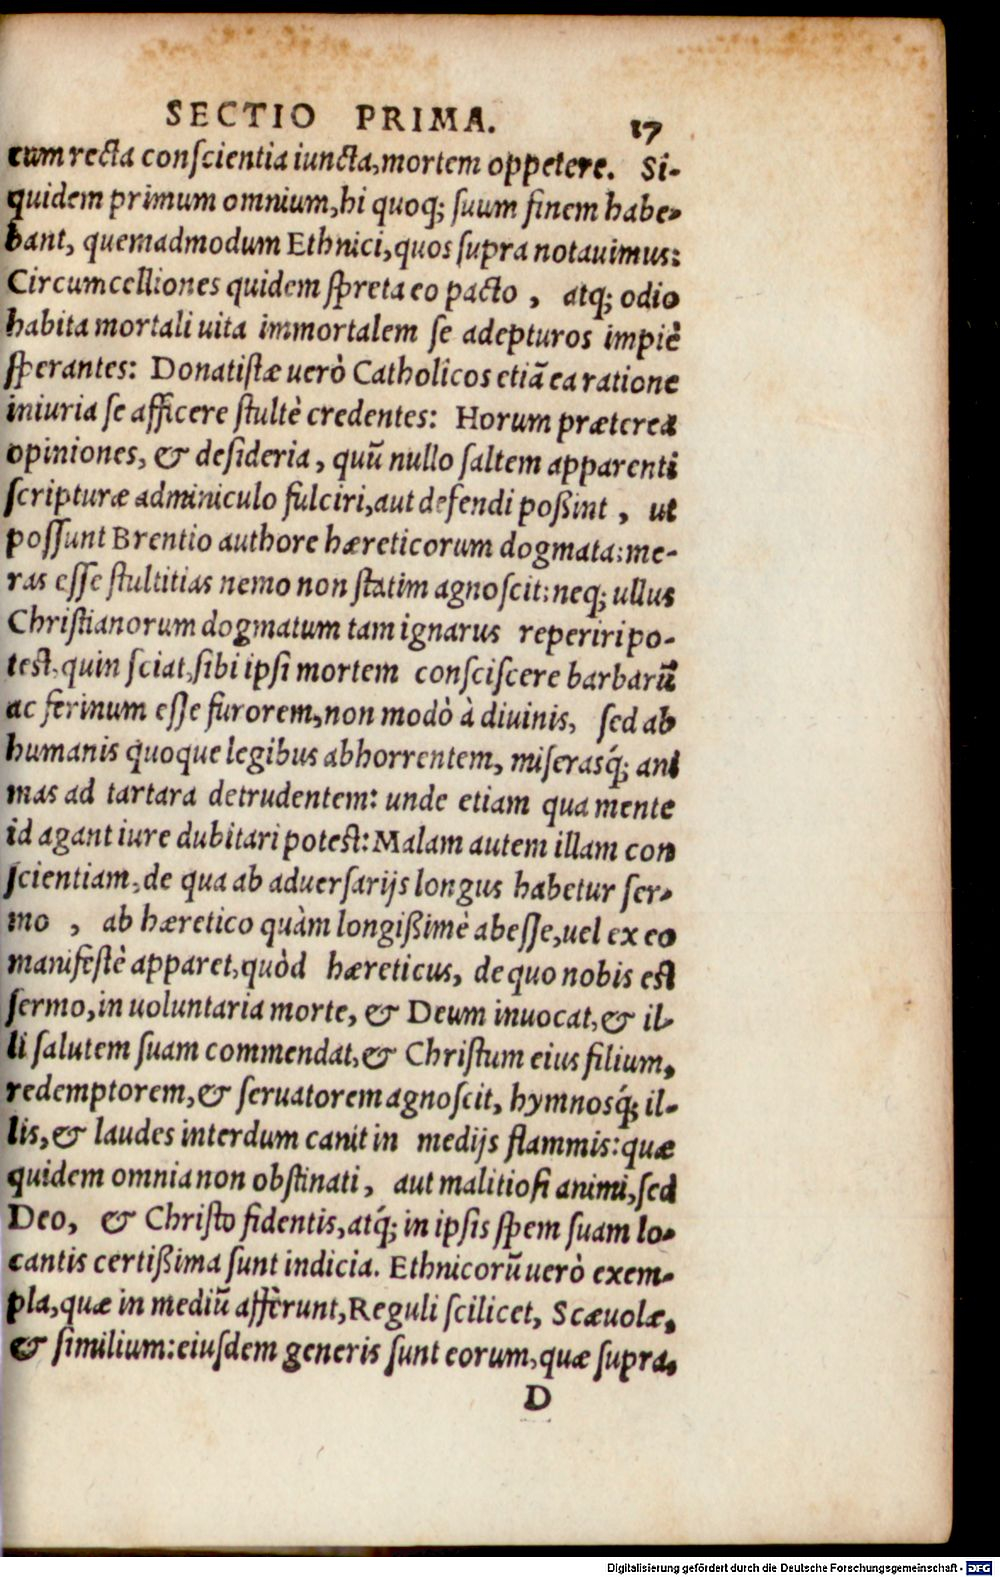 SECTIO PRIMA. 17
cum recta conſcientia iuncta, mortem oppetere. Si-
quidem primum omnium, hi quoq; ſuum finem habe-
bant, quemadmodum Ethnici, quos ſupra notauimus:
Circumcelliones quidem ſpreta eo pacto, atq; odio
habita mortali uita immortalem ſe adepturos impiè
ſperantes: Donatiſtæ uerò Catholicos etiã ea ratione
iniuria ſe afficere ſtultè credentes: Horum præterea
opiniones, & deſideria, quũ nullo ſaltem apparenti
ſcripturæ adminiculo fulciri, aut defendi poßint, ut
poſſunt Brentio authore hæreticorum dogmata: me-
ras eſſe ſtultitias nemo non ſtatim agnoſcit: neq; ullus
Chriſtianorum dogmatum tam ignarus reperiri po-
teſt, quin ſciat, ſibi ipſi mortem conſciſcere barbarũ
ac ferinum eſſe furorem, non modò à diuinis, ſed ab
humanis quoque legibus abhorrentem, miſerasq́; ani
mas ad tartara detrudentem: unde etiam qua mente
id agant iure dubitari poteſt: Malam autem illam con
ſcientiam, de qua ab aduerſarijs longus habetur ſer-
mo, ab hæretico quàm longißimè abeſſe, uel ex eo
manifeſtè apparet, quòd hæreticus, de quo nobis eſt
ſermo, in uoluntaria morte, & Deum inuocat, & il-
li ſalutem ſuam commendat, & Chriſtum eius filium,
redemptorem, & ſeruatorem agnoſcit, hymnosq́; il-
lis, & laudes interdum canit in medijs flammis: quæ
quidem omnia non obſtinati, aut malitioſi animi, ſed
Deo, & Chriſto fidentis, atq́; in ipſis ſpem ſuam lo-
cantis certißima ſunt indicia. Ethnicorũ uerò exem-
pla, quæ in mediũ afferunt, Reguli ſcilicet, Scæuolæ,
& ſimilium: eiuſdem generis ſunt eorum, quæ ſupra,
D
Digitalisierung gefördert durch die Deutsche Forschungsgemeinschaft - DFG